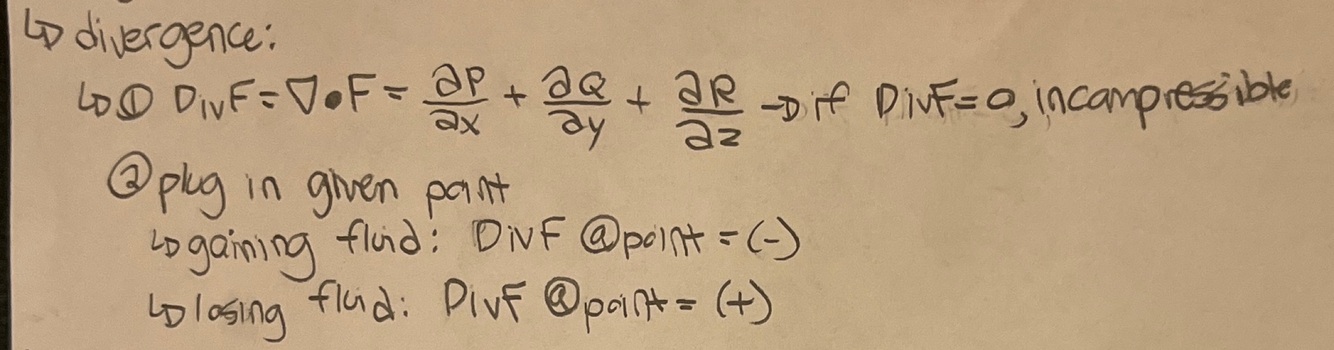 ↳ divergence:
↳ ① Div F = ∇ • F = ∂P/∂x + ∂Q/∂y + ∂R/∂z → if Div F = 0, incompressible
② plug in given point
↳ gaining fluid: Div F @ point = (-)
↳ losing fluid: Div F @ point = (+)